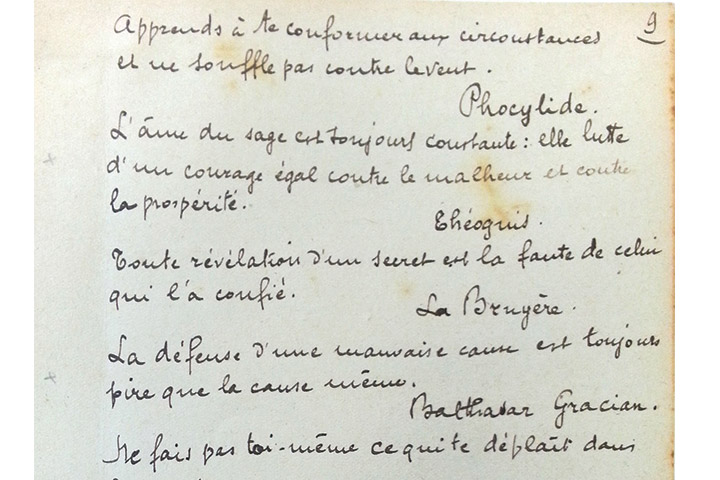 9
Apprends à te conformer aux circonstances
et ne souffle pas contre le vent.
Phocylide.
L'âme du sage est toujours constante : elle lutte
d'un courage égal contre le malheur et contre
la prospérité.
Théognis.
Toute révélation d'un secret est la faute de celui
qui l'a confié.
La Bruyère.
La défense d'une mauvaise cause est toujours
pire que la cause même.
Balthasar Gracian.
Ne fais pas toi-même ce qui te déplaît dans